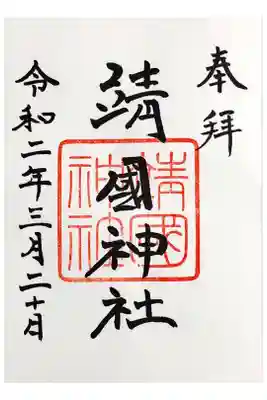 奉拝
靖國神社
靖国神社
令和二年三月二十日